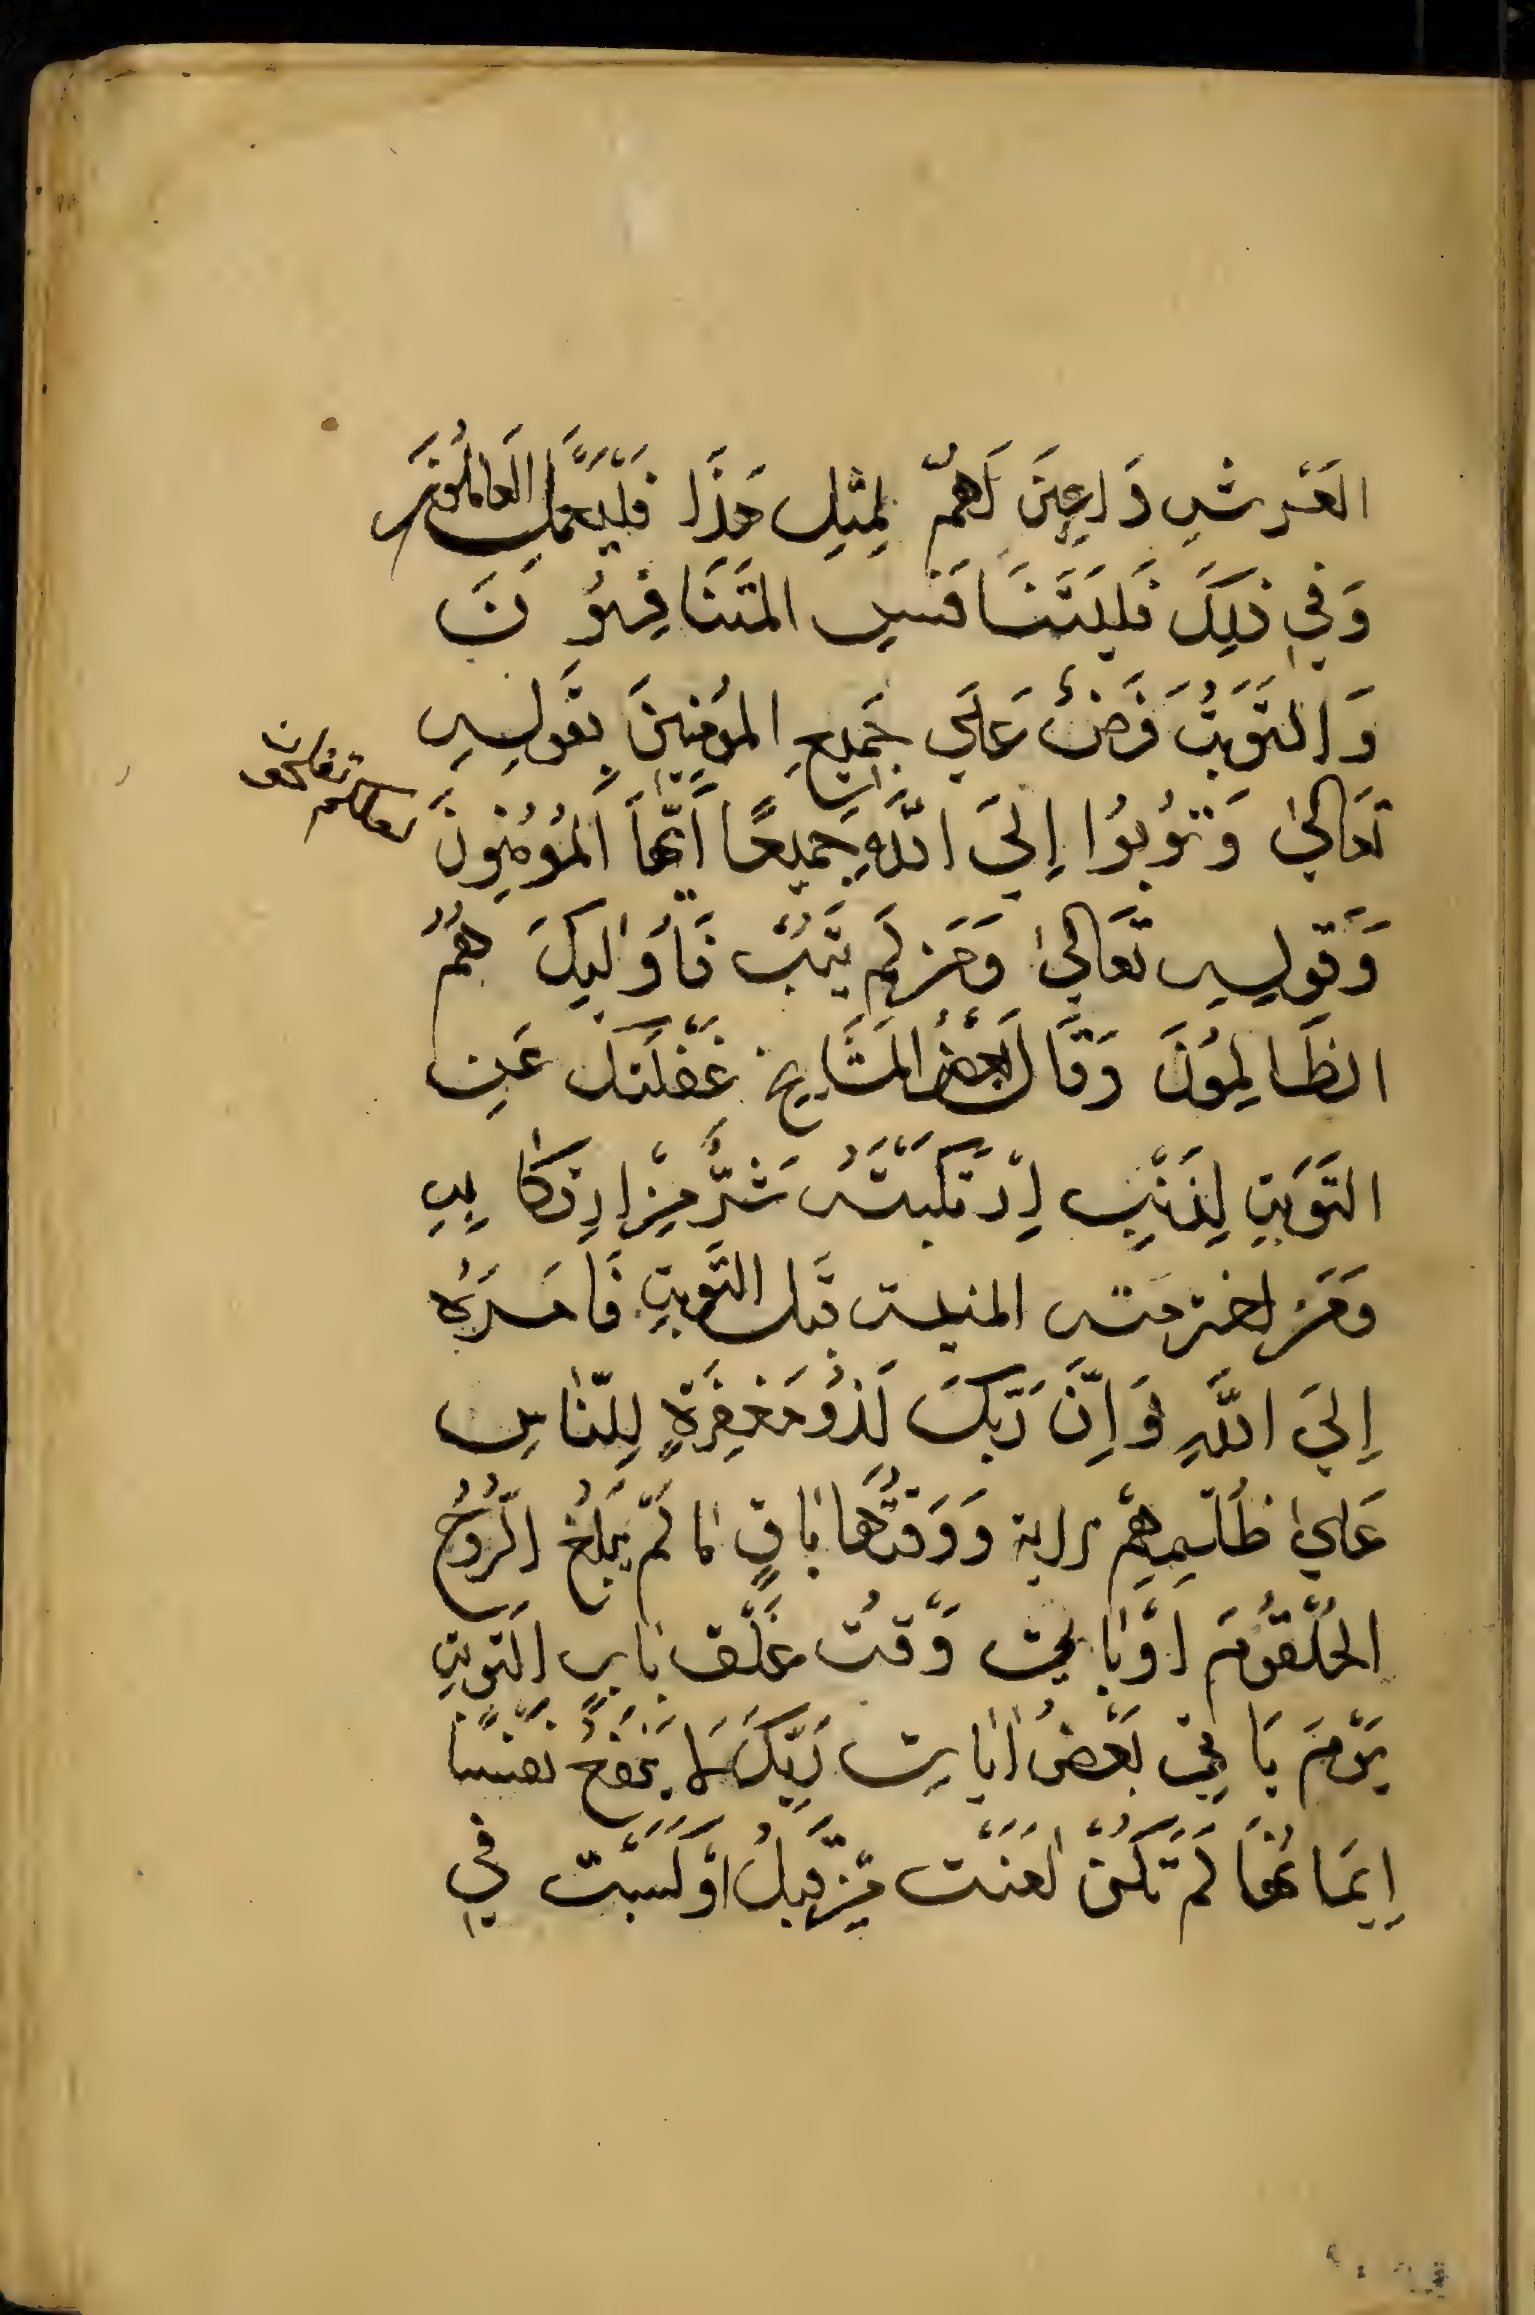 العَرْشِ دَاعِينَ لَهُمْ لِمِثْلِ هَذَا فَلْيَعْمَلِ العَامِلُونَ
وَفِي ذَلِكَ فَلْيَتَنَافَسِ المُتَنَافِسُونَ
وَالتَّوْبَةُ فَرْضٌ عَلَى جَمِيعِ المُؤمِنِينَ بِقَولِهِ
تَعَالَى وَتُوبُوا إِلَى اللَّهِ جَمِيعًا أَيُّهَا المُؤْمِنُونَ
لعلكم تفلحون
وَقَولِهِ تَعَالَى وَمَن لَم يَتُبْ فَأُوَلَئِكَ هُمُ
الظَالِمُونَ وَقَالَ بَعْضُ المَشَايِخِ غَفْلَتُكَ عَنِ
التَوبَةِ لِذَنْبٍ اِرْتَكَبْتَهُ شَرٌّ مِنْ اِرتِكَابِهِ
وَمَن اخترمته المنية قبل التَّوبَةِ فَأَمْرُهُ
إِلَى اللَّهِ وَإِنَّ رَبَّكَ لَذُو مَغْفِرَةٍ لِلنَّاسِ
عَلَى ظُلْمِهِمْ الاية وَوَقْتُهَا بَاقٍ مَا لَمْ يَبْلُغِ الرُّوحُ
الحُلْقُومَ اَوْ يَاتِي وَقتُ غَلْقِ بَابِ التَوبَةِ
يَوْمَ يَاتِي بَعْضُ اٰيَاتِ رَبِّكَ لَا يَنْفَعُ نَفْسًا
اِيمَانُهَا لَمْ تَكُنْ اٰمَنَتْ مِنْ قَبلُ اَوْ كَسَبَتْ فِي